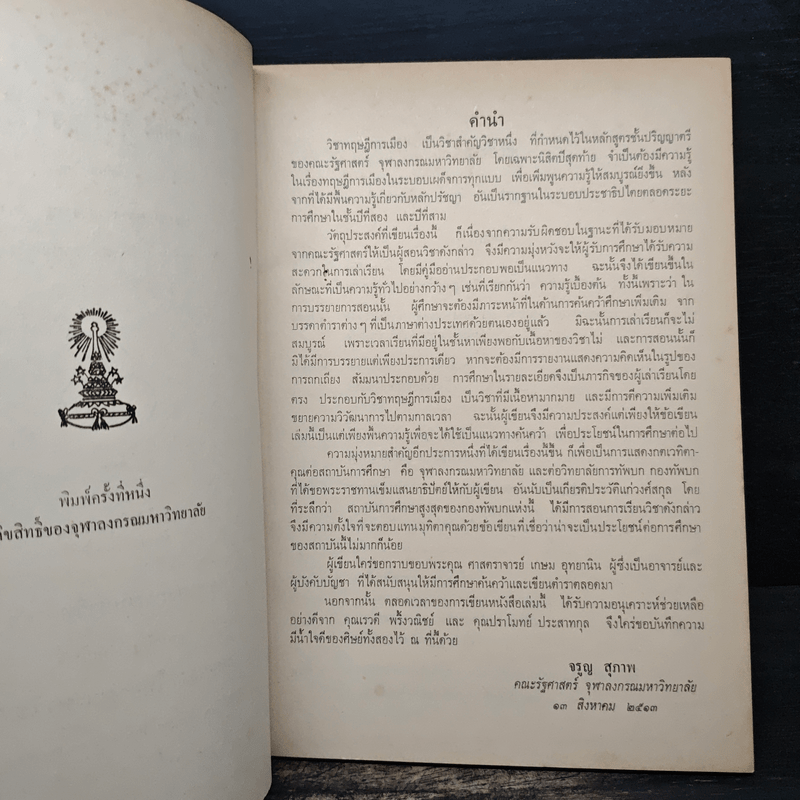 พิมพ์ครั้งที่หนึ่ง
ลิขสิทธิ์ของจุฬาลงกรณมหาวิทยาลัย
คำนำ
วิชาทฤษฎีการเมือง เป็นวิชาสำคัญวิชาหนึ่ง ที่กำหนดไว้ในหลักสูตรชั้นปริญญาตรี
ของคณะรัฐศาสตร์ จุฬาลงกรณมหาวิทยาลัย โดยเฉพาะนิสิตปีสุดท้าย จำเป็นต้องมีความรู้
ในเรื่องทฤษฎีการเมืองในระบอบเผด็จการทุกแบบ เพื่อเพิ่มพูนความรู้ให้สมบูรณ์ยิ่งขึ้น หลัง
จากที่ได้มีพื้นความรู้เกี่ยวกับหลักปรัชญา อันเป็นรากฐานในระบอบประชาธิปไตยตลอดระยะ
การศึกษาในชั้นปีที่สอง และปีที่สาม
วัตถุประสงค์ที่เขียนเรื่องนี้ ก็เนื่องจากความรับผิดชอบในฐานะที่ได้รับมอบหมาย
จากคณะรัฐศาสตร์ให้เป็นผู้สอนวิชาดังกล่าว จึงมีความมุ่งหวังจะให้ผู้รับการศึกษาได้รับความ
สะดวกในการเล่าเรียน โดยมีคู่มืออ่านประกอบพอเป็นแนวทาง ฉะนั้นจึงได้เขียนขึ้นใน
ลักษณะที่เป็นความรู้ทั่วไปอย่างกว้างๆ เช่นที่เรียกกันว่า ความรู้เบื้องต้น ทั้งนี้เพราะว่า ใน
การบรรยายการสอนนั้น ผู้ศึกษาจะต้องมีภาระหน้าที่ในด้านการค้นคว้าศึกษาเพิ่มเติม จาก
บรรดาตำราต่างๆ ที่เป็นภาษาต่างประเทศด้วยตนเองอยู่แล้ว มิฉะนั้นการเล่าเรียนก็จะไม่
สมบูรณ์ เพราะเวลาเรียนที่มีอยู่ในชั้นหาเพียงพอกับเนื้อหาของวิชาไม่ และการสอนนั้นก็
มิได้มีการบรรยายแต่เพียงประการเดียว หากจะต้องมีการรายงานแสดงความคิดเห็นในรูปของ
การถกเถียง สัมมนาประกอบด้วย การศึกษาในรายละเอียดจึงเป็นภารกิจของผู้เล่าเรียนโดย
ตรง ประกอบกับวิชาทฤษฎีการเมือง เป็นวิชาที่มีเนื้อหามากมาย และมีการตีความเพิ่มเติม
ขยายความวิวัฒนาการไปตามกาลเวลา ฉะนั้นผู้เขียนจึงมีความประสงค์แต่เพียงให้ข้อเขียน
เล่มนี้เป็นแต่เพียงพื้นความรู้เพื่อจะได้ใช้เป็นแนวทางค้นคว้า เพื่อประโยชน์ในการศึกษาต่อไป
ความมุ่งหมายสำคัญอีกประการหนึ่งที่ได้เขียนเรื่องนี้ขึ้น ก็เพื่อเป็นการแสดงกตเวทิตา-
คุณต่อสถาบันการศึกษา คือ จุฬาลงกรณมหาวิทยาลัย และต่อวิทยาลัยการทัพบก กองทัพบก
ที่ได้ขอพระราชทานเข็มเสนาธิปัตย์ให้กับผู้เขียน อันนับเป็นเกียรติประวัติแก่วงศ์สกุล โดย
ที่ระลึกว่า สถาบันการศึกษาสูงสุดของกองทัพบกแห่งนี้ ได้มีการสอนการเรียนวิชาดังกล่าว
จึงมีความตั้งใจที่จะตอบแทนมุทิตาคุณด้วยข้อเขียนที่เชื่อว่าน่าจะเป็นประโยชน์ต่อการศึกษา
ของสถาบันนี้ไม่มากก็น้อย
ผู้เขียนใคร่ขอกราบขอบพระคุณ ศาสตราจารย์ เกษม อุทยานิน ผู้ซึ่งเป็นอาจารย์และ
ผู้บังคับบัญชา ที่ได้สนับสนุนให้มีการศึกษาค้นคว้าและเขียนตำราตลอดมา
นอกจากนั้น ตลอดเวลาของการเขียนหนังสือเล่มนี้ ได้รับความอนุเคราะห์ช่วยเหลือ
อย่างดีจาก คุณเรวดี พริ้งวณิชย์ และ คุณปราโมทย์ ประสาทกุล จึงใคร่ขอบันทึกความ
มีน้ำใจดีของศิษย์ทั้งสองไว้ ณ ที่นี้ด้วย
จรูญ สุภาพ
คณะรัฐศาสตร์ จุฬาลงกรณมหาวิทยาลัย
๑๓ สิงหาคม ๒๕๑๓